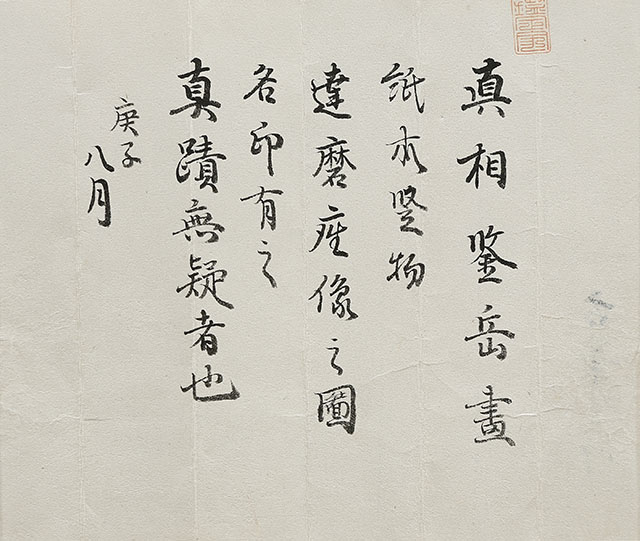 真相鑒岳畫
紙本竪物
達磨座像之圖
名印有之
真蹟無疑者也
庚子
八月